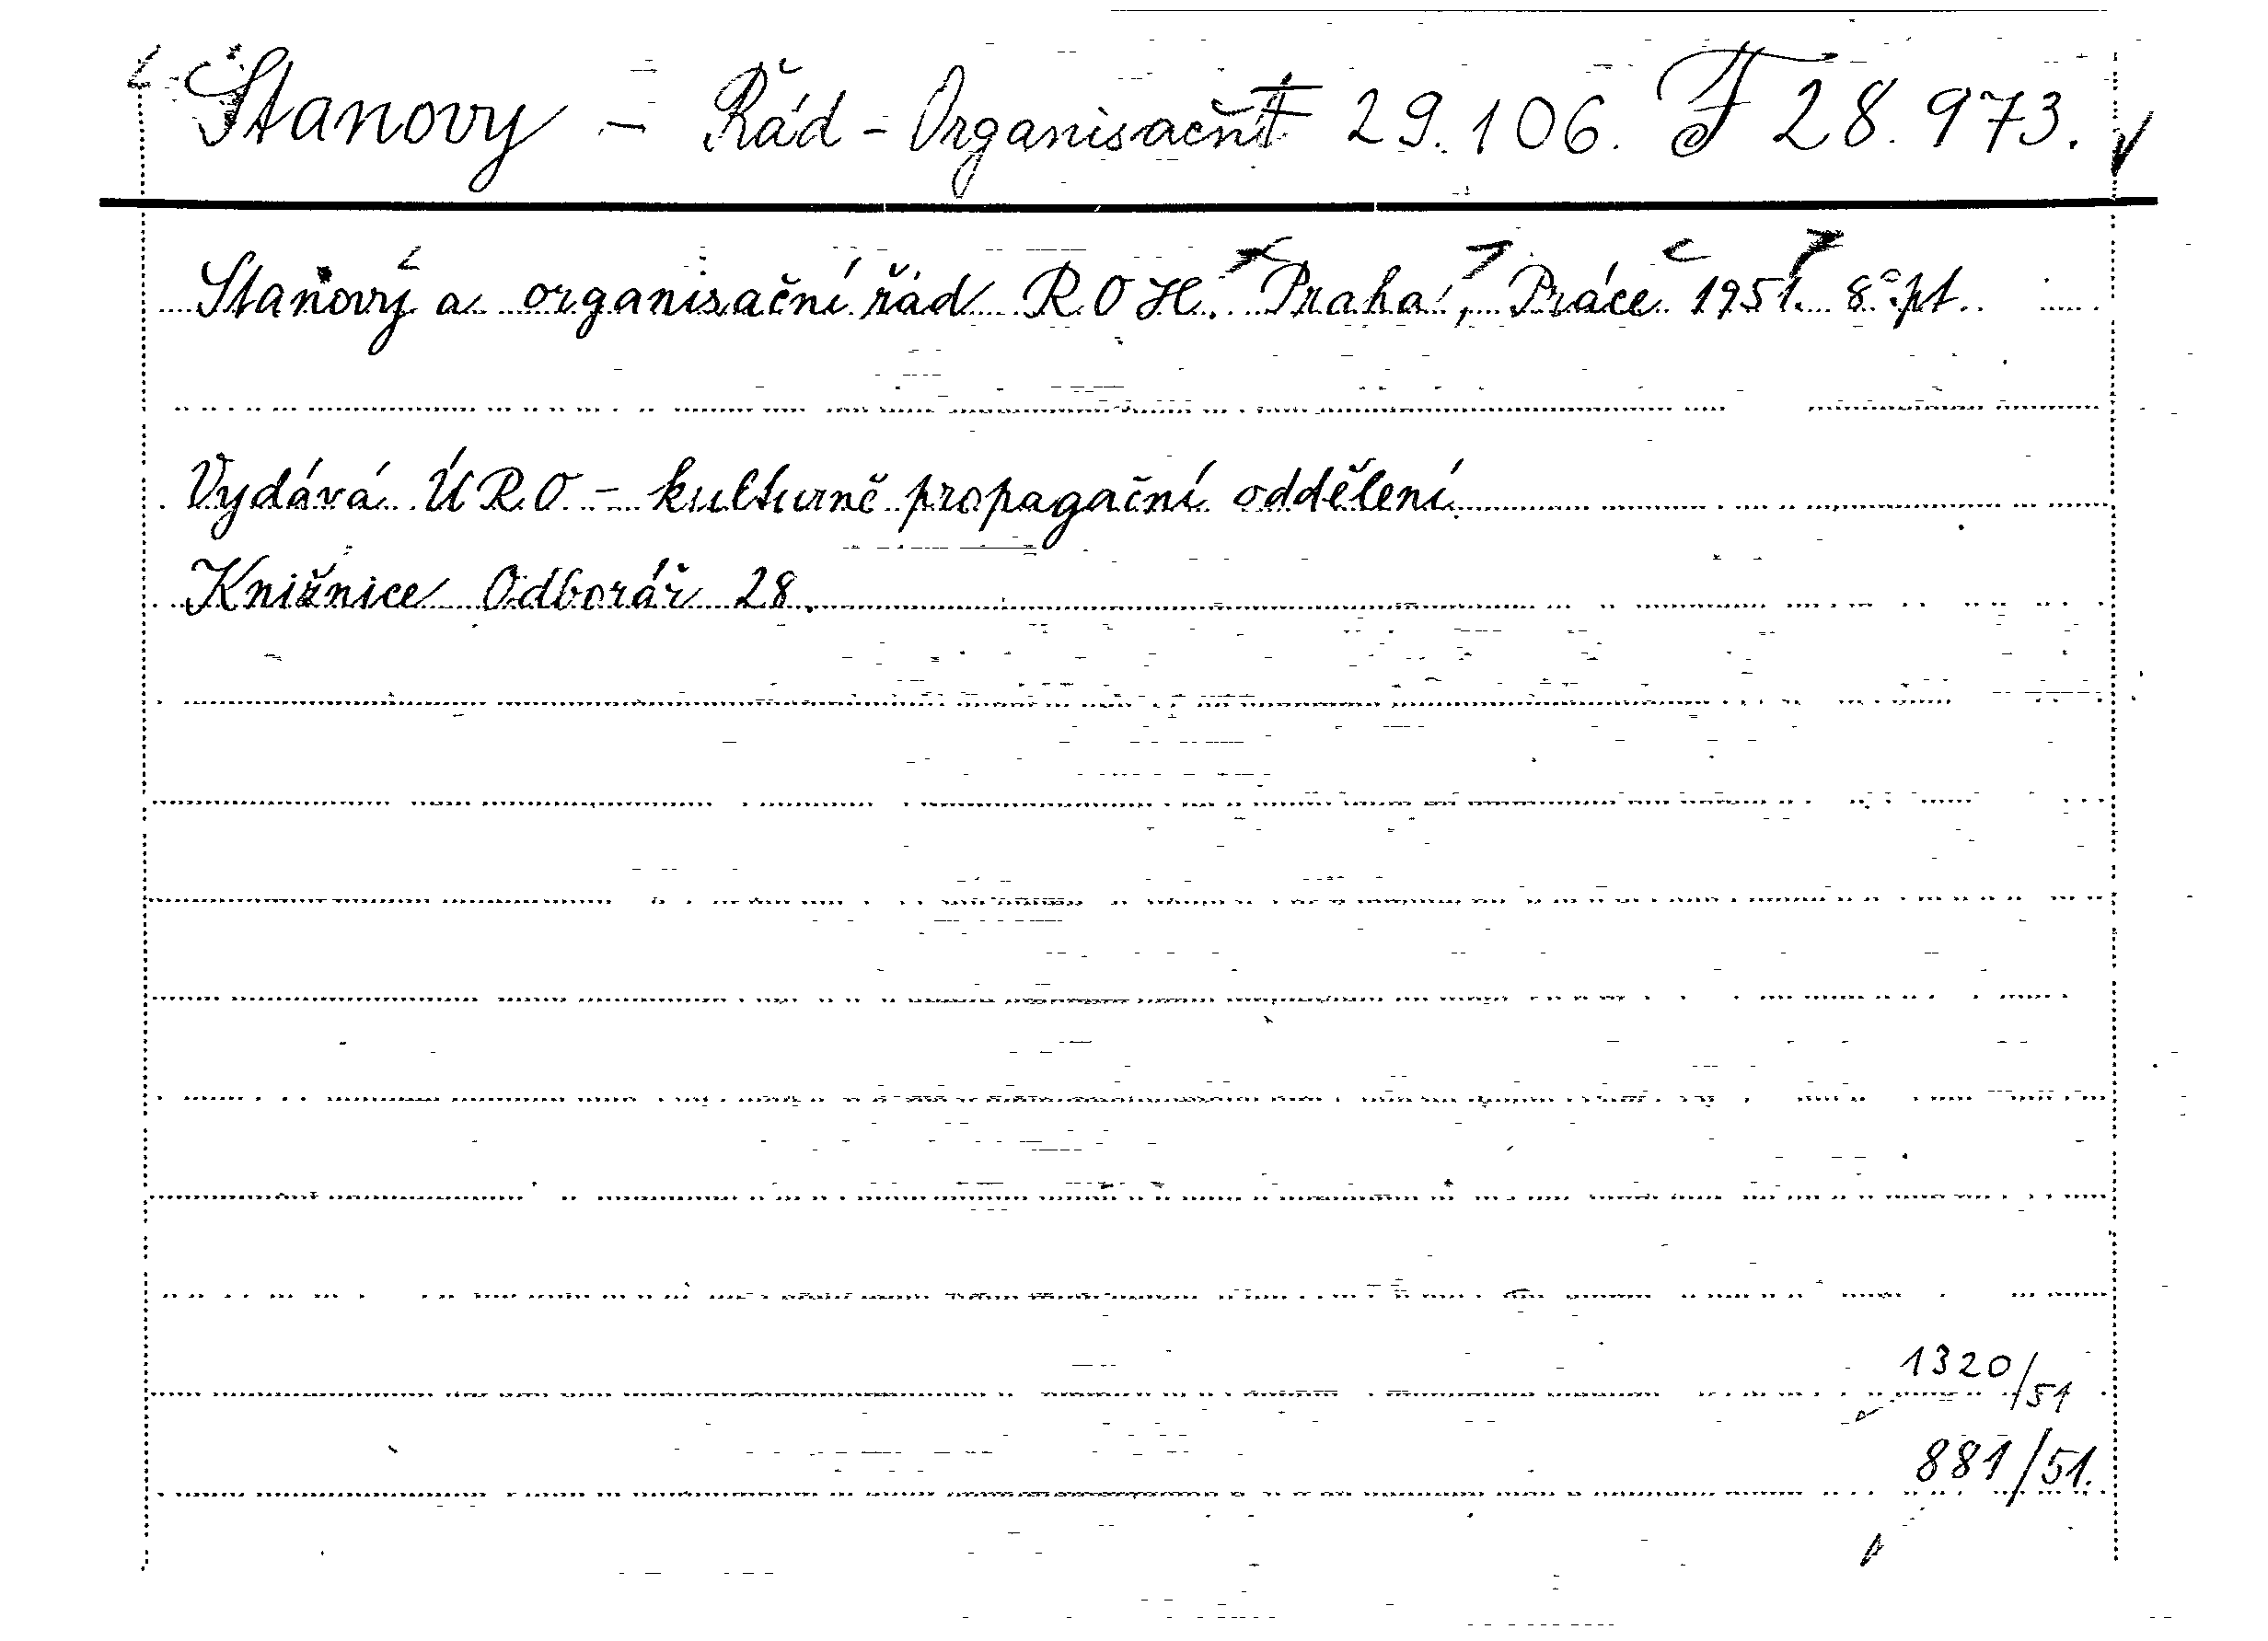 Stanovy - Řád - Organisační F 29.106. F 28.973.
Stanovy a organisační řád ROH. Praha, Práce 1951. 8° pt.
Vydává ÚRO - kulturně propagační oddělení
Knižnice Odborář 28.
1320/51
881/51.